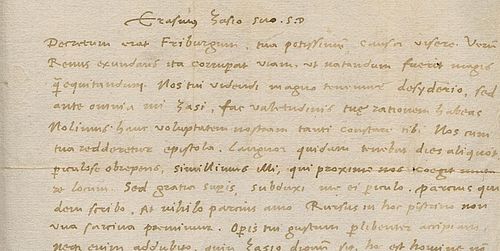 Erasmus Zasio suo. s.D
Decretum erat Friburgum, tua potissimum causa visere. Verum
Renus exundans ita corrupat viam, ut natandum fuerit magis
q̃ equitandum. Nos tui videndi magno tenemur desyderio, sed
ante omnia mi Zasi, fac valetudinis tuę rationem habeas
Nolimus hanc voluptatem nostram tanti constare tibi. Nos cum
tua redderetur epistola. Languor quidam tenebat dies aliquot
periculose obrepens, simillimus illi, qui proxime nos coegit muta
re locum. Sed gratia supis, subduxi me ei piculo. parcius qui
dem scribo, At nihilo parcius amo. Rursus in hoc pistrino non
una sarcina premimur. Opis tui gustum plibenter accipiam,
neq enim addubito, quin Zasio dignum sit, hoc est homine in